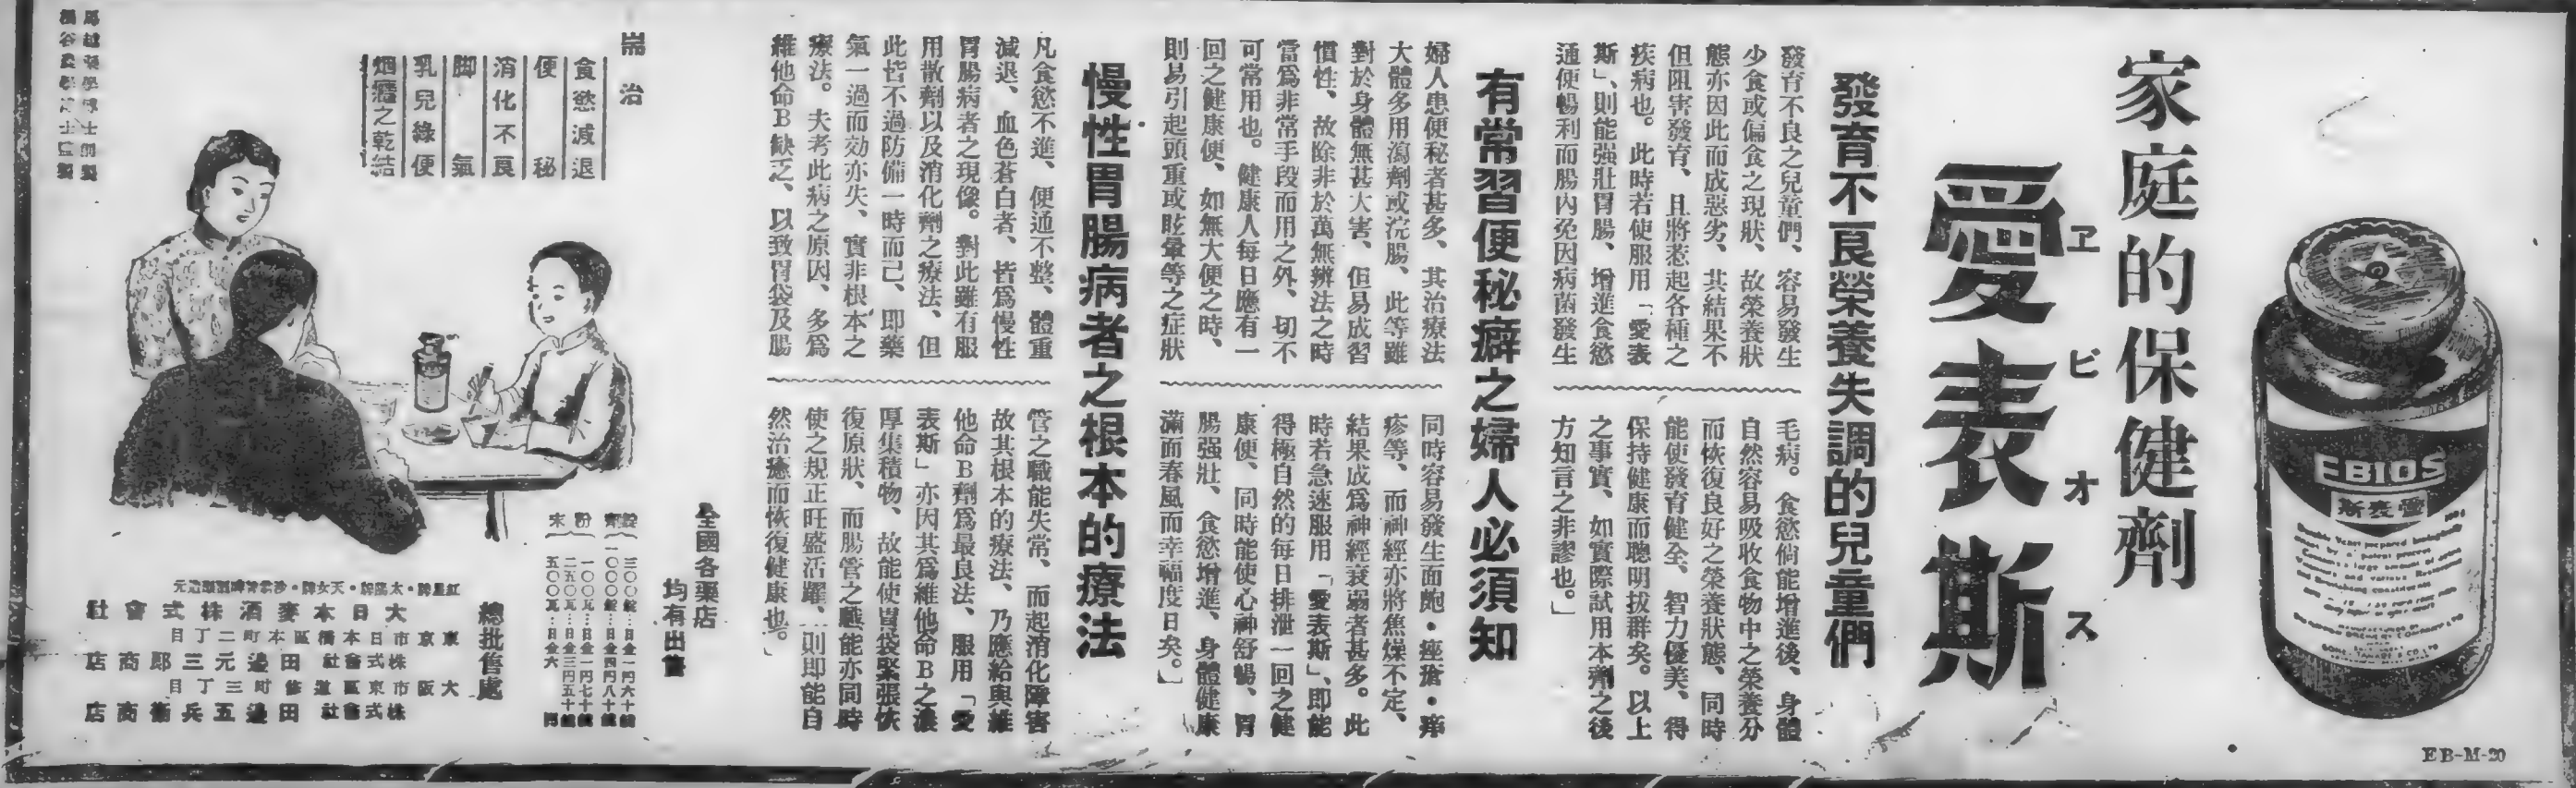 家庭的保健劑
愛表斯
ヱビオス
EBIOS
斯表愛
EB-M-20
發育不良榮養失調的兒童們
發育不良之兒童們、容易發生
少食或偏食之現狀、故榮養狀
態亦因此而成惡劣、其結果不
但阻害發育、且將惹起各種之
疾病也。此時若使服用「愛表
斯」、則能强壯胃腸、增進食慾
通便暢利而腸內免因病菌發生
毛病。食慾倘能增進後、身體
自然容易吸收食物中之榮養分
而恢復良好之榮養狀態、同時
能使發育健全、智力優美、得
保持健康而聰明拔群矣。以上
之事實、如實際試用本劑之後
方知言之非謬也。」
有常習便秘癖之婦人必須知
婦人患便秘者甚多、其治療法
大體多用瀉劑或浣腸、此等雖
對於身體無甚大害、但易成習
慣性、故除非於萬無辨法之時
當爲非常手段而用之外、切不
可常用也。健康人每日應有一
回之健康便、如無大便之時、
則易引起頭重或眩暈等之症狀
同時容易發生面皰・痤瘡・痒
疹等、而神經亦將焦燥不定、
結果成爲神經衰弱者甚多。此
時若急速服用「愛表斯」、即能
得極自然的每日排泄一回之健
康便、同時能使心神舒暢、胃
腸强壯、食慾增進、身體健康
滿面春風而幸福度日矣。」
慢性胃腸病者之根本的療法
凡食慾不進、便通不整、體重
減退、血色蒼白者、皆爲慢性
胃腸病者之現像。對此雖有服
用散劑以及消化劑之療法、但
此皆不過防備一時而已、即藥
氣一過而効亦失、實非根本之
療法。夫考此病之原因、多爲
維他命B缺乏、以致胃袋及腸
管之職能失常、而起消化障害
故其根本的療法、乃應給與維
他命B劑爲最良法、服用「愛
表斯」亦因其爲維他命B之濃
厚集積物、故能使胃袋緊張恢
復原狀、而腸管之職能亦同時
使之規正旺盛活躍、則即能自
然治癒而恢復健康也。」
耑治
食慾減退
便秘
消化不良
脚氣
乳兒綠便
烟癮之乾結
全國各藥店
均有出售
錠劑
三〇〇錠…日金一円六十錢
一〇〇〇錠…日金四円八十錢
粉末
一〇〇瓦…日金一円七十錢
二五〇瓦…日金三円五十錢
五〇〇瓦…日金六円
總批售處
大日本麥酒株式會社
東京市日本橋區本町二丁目
株式會社田邊元三郎商店
大阪市東區道修町三丁目
株式會社田邊五兵衛商店